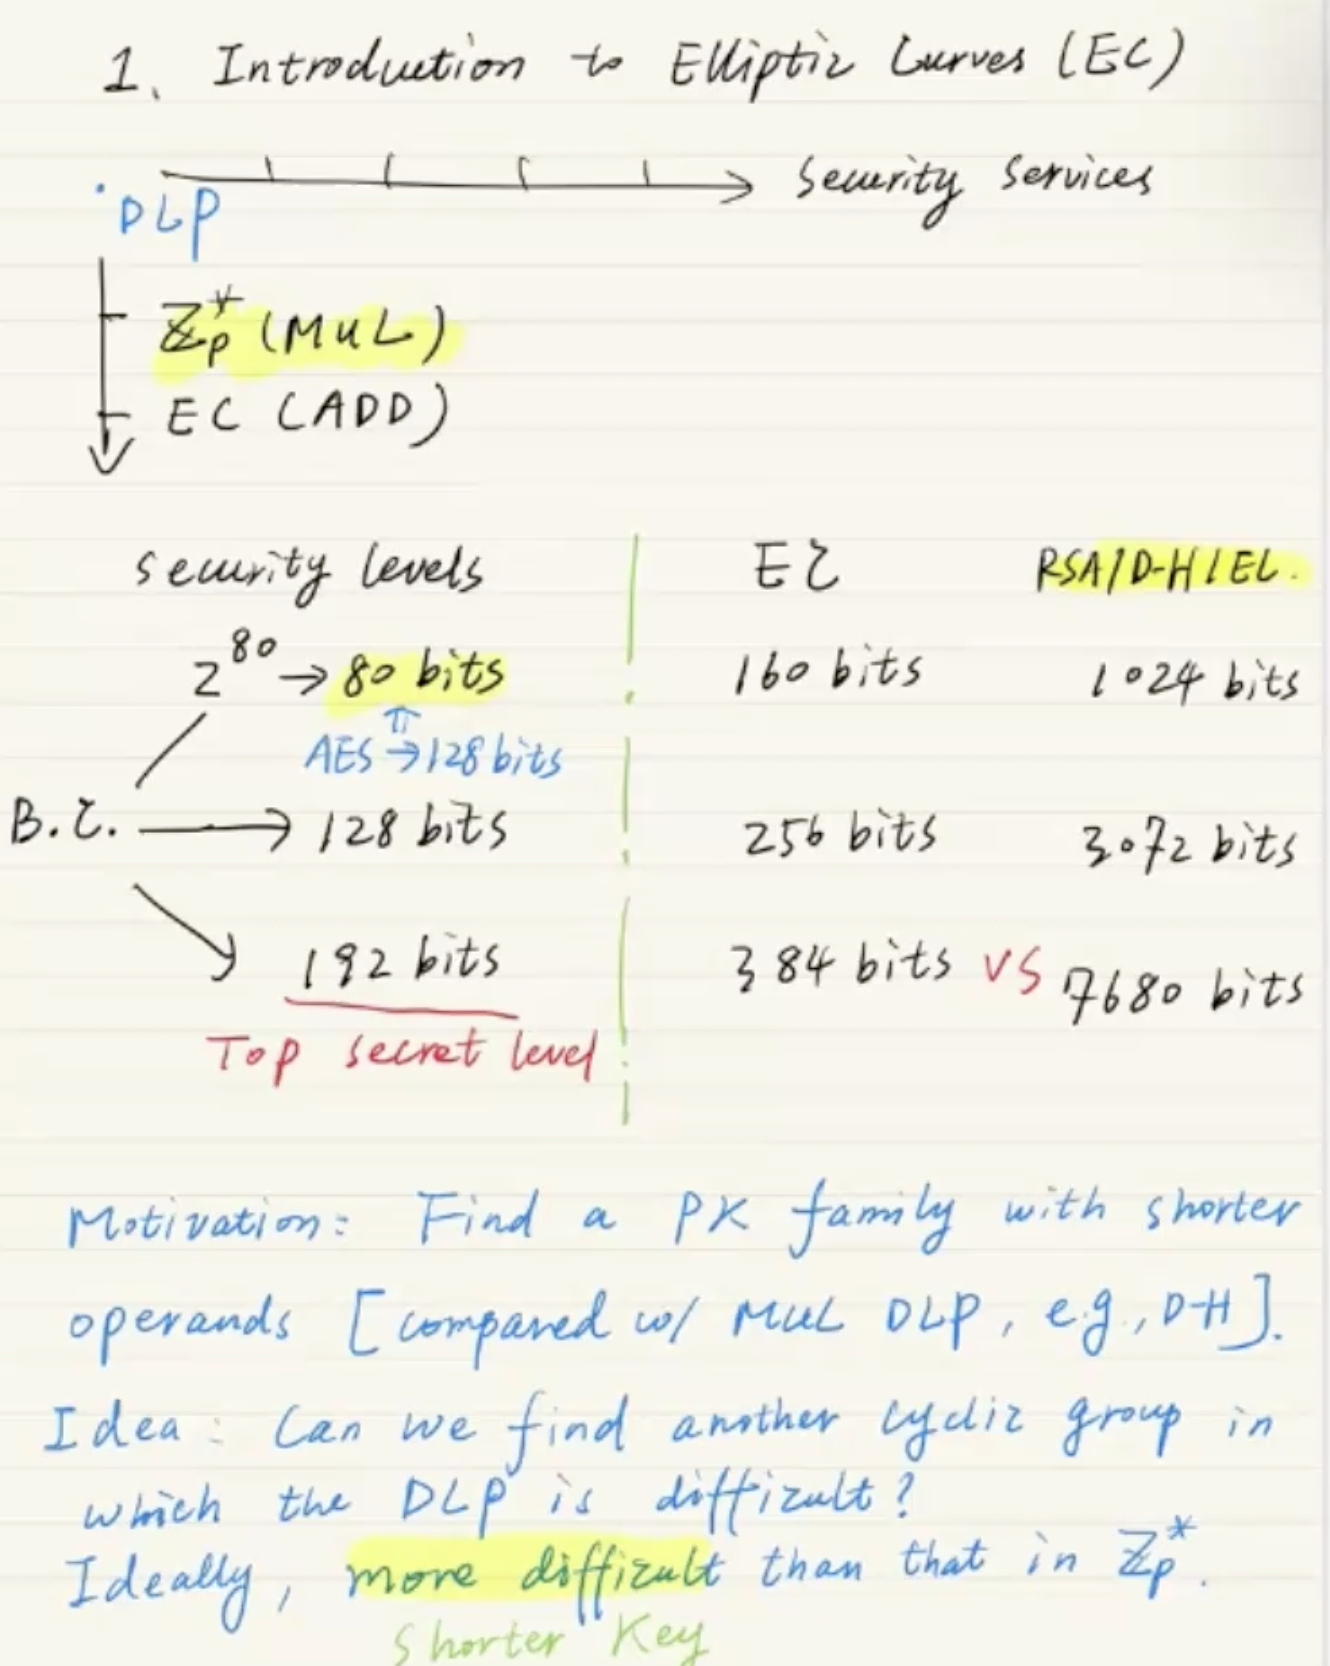 1. Introduction to Elliptic Curves (EC)
Security Services
DLP
Zp* (MUL)
EC (ADD)
security levels EC RSA/D-H/EL.
2^80 → 80 bits 160 bits 1024 bits
⇑
AES → 128 bits
B.C. → 128 bits 256 bits 3072 bits
192 bits 384 bits VS 7680 bits
Top secret level
Motivation: Find a PK family with shorter
operands [compared w/ MUL DLP, e.g., D-H].
Idea: Can we find another cyclic group in
which the DLP is difficult?
Ideally, more difficult than that in Zp*.
Shorter Key